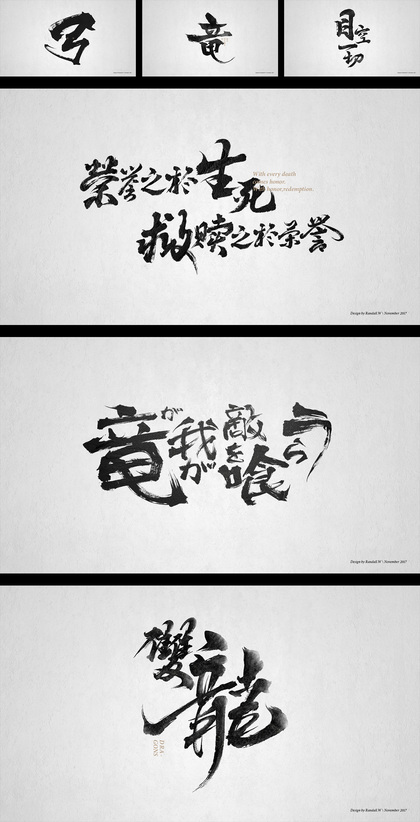 弓
竜
目空一切
榮誉之於生死
With every death
comes honor.
With honor,redemption.
救赎之於荣誉
Design by W \ November 2017
竜が我が敵を喰らう
Design by W \ November 2017
雙龍
DRA
GONS
Design by W \ November 2017